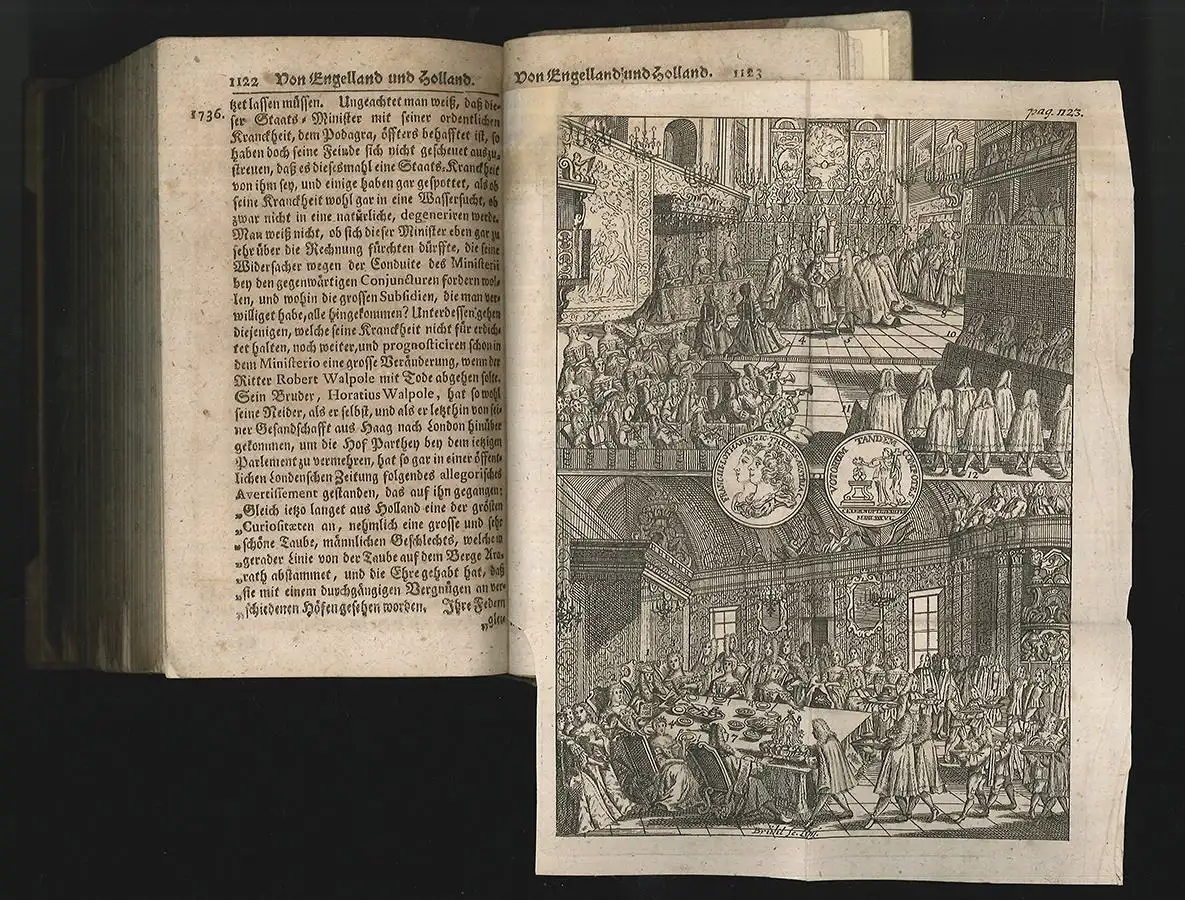 1122 Von Engelland und Holland.
1736.
tzet lassen müssen. Ungeachtet man weiß, daß die-
ser Staats-Minister mit seiner ordentlichen
Kranckheit, dem Podagra, öffters behafftet ist, so
haben doch seine Feinde sich nicht gescheuet auszu-
streuen, daß es dießmahl eine Staats-Kranckheit
von ihm sey, und einige haben gar gespottet, als ob
seine Kranckheit wohl gar in eine Wassersucht, ob
zwar nicht in eine natürliche, degeneriren werde.
Man weiß nicht, ob sich dieser Minister eben gar zu
sehr über die Rechnung fürchten dürffte, die seine
Widersacher wegen der Conduite des Ministerii
bey den gegenwärtigen Conjuncturen fordern wol-
len, und wohin die grossen Subsidien, die man ver-
williget habe, alle hingekommen? Unterdessen gehen
diejenigen, welche seine Kranckheit nicht für erdich-
tet halten, noch weiter, und prognosticiren schon in
dem Ministerio eine grosse Veränderung, wenn der
Ritter Robert Walpole mit Tode abgehen solte.
Sein Bruder, Horatius Walpole, hat so wohl
seine Neider, als er selbst, und als er letzthin von sei-
ner Gesandschafft aus Haag nach London hinüber
gekommen, um die Hof Parthey bey dem ietzigen
Parlement zu vermehren, hat so gar in einer öffent-
lichen Londenschen Zeitung folgendes allegorisches
Avertissement gestanden, das auf ihn gegangen:
„Gleich ietzo langet aus Holland eine der grösten
„Curiositæten an, nehmlich eine grosse und sehr
„schöne Taube, männlichen Geschlechts, welche in
„gerader Linie von der Taube auf dem Berge Ara-
„rath abstammet, und die Ehre gehabt hat, daß
„sie mit einem durchgängigen Vergnügen an ver-
„schiedenen Höfen gesehen worden. Ihre Federn
„glei-
Von Engelland und Holland. 1123
pag. 1123.
4
5
9
10
11
12
VOTORUM TANDEM COMPOTES
7